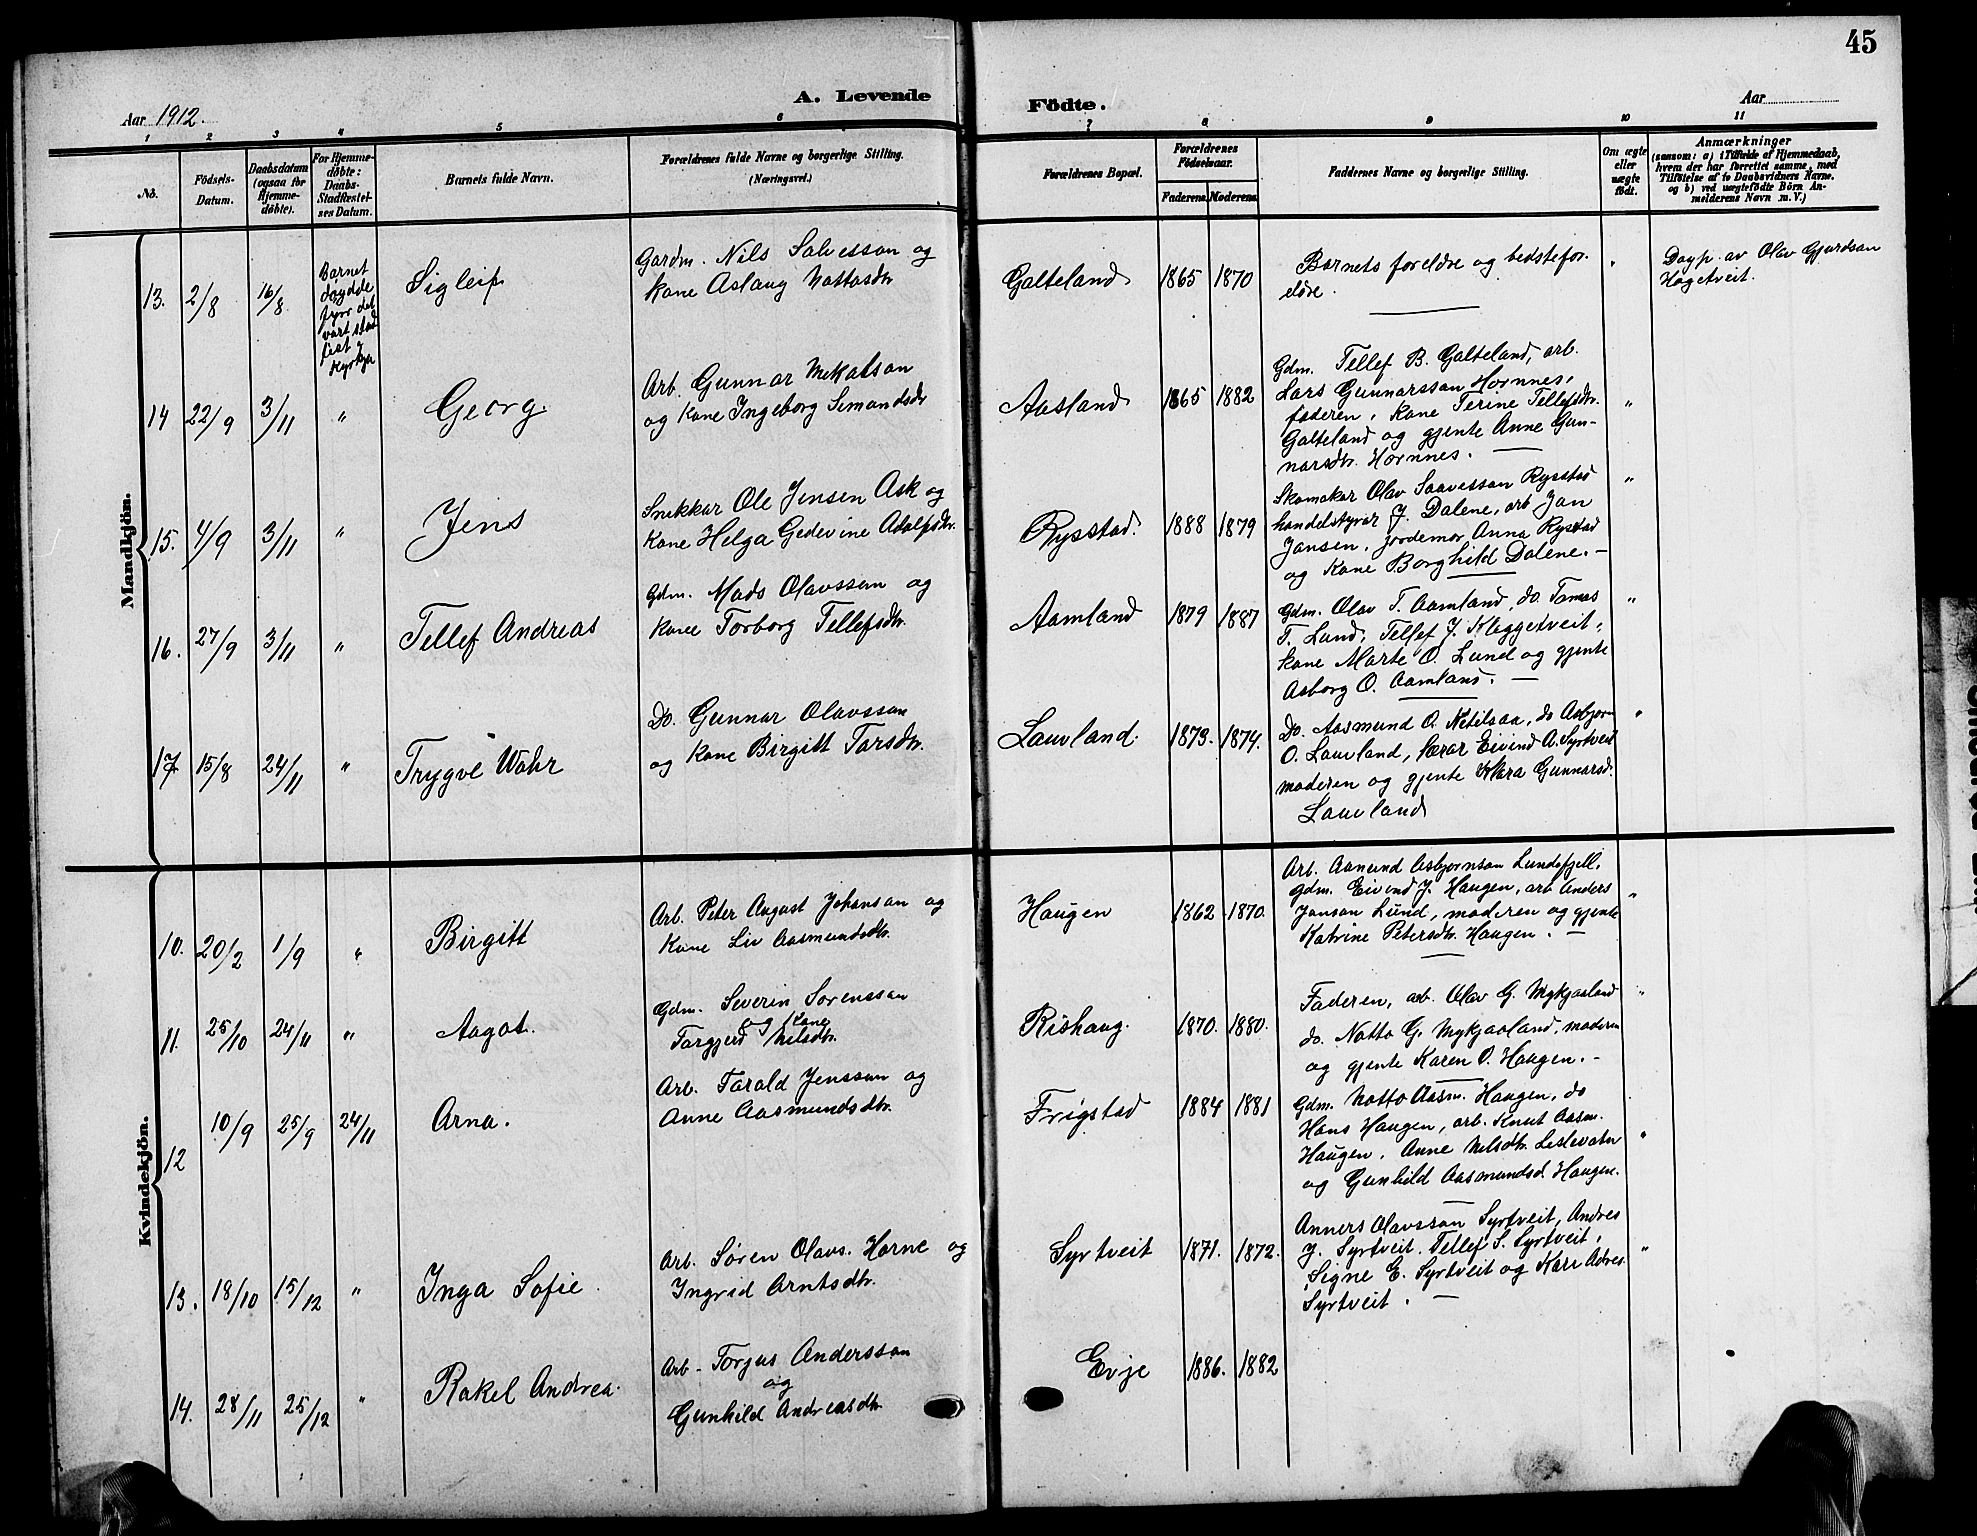 45
Aar 1912.
A. Levende
Födte.
Aar
1 2 3 4 5 6 7 8 9 10 11
No.
Födsels-
Datum.
Daabsdatum
(ogsaa for
Hjemme-
döbte).
For Hjemme-
döbte:
Daabs-
Stadfæstel-
ses Datum.
Barnets fulde Navn.
Forældrenes fulde Navne og borgerlige Stilling.
(Næringsvei.)
Forældrenes Bopæl.
Forældrenes
Födselsaar.
Faderens. Moderens.
Faddernes Navne og borgerlige Stilling.
Om ægte
eller
uægte
født.
Anmærkninger
(saasom: a) i Tilfælde af Hjemmedaab,
hvem der har forrettet samme, med
Tilföielse af to Daabsvidners Navne.
og b) ved uægtefödte Börn An-
melderens Navn m. V.)
Mandkjön.
13. 2/8 16/8
Barnet
döydde
fyrr det
vart stad
fest i
kyrkja
Sigleif
Gardm. Nils Salvesson og
kone Aslaug Nottosdtr
Galteland
1865 1870
Barnets foreldre og bedstefor-
eldre.
"
Døyp. av Olav Gjurdson
Høgetveit.
14 22/9 3/11 "
Georg
Arb. Gunnar Mekalson
og kone Ingeborg Simondsdtr
Aasland
1865 1882
Gdm. Tellef B. Galteland, arb.
Lars Gunnarsson Hornnes,
faderen, kone Terine Tellefsdtr.
Galteland og gjente Anne Gun-
narsdtr. Hornnes. —
"
15. 4/9 3/11 "
Jens
Snekkar Ole Jensen Ask og
kone Helga Gedevine Adolfsdtr.
Rysstad.
1888 1879
Skomakar Olav Saavesson Rysstad
handelstyrar J. Dalene, arb Jan
Jansen, jordemor Anna Rysstad
og kone Borghild Dalene. —
"
16. 27/9 3/11 "
Tellef Andreas
Gdm. Mads Olavsson og
kone Torborg Tellefsdtr.
Aamland
1879 1887
Gdm. Olav T. Aamland, do. Tomas
T. Lund, Tellef J. Kleggetveit,
kone Marte O. Lund og gjente
Asborg O. Aamland. —
"
17 15/8 24/11 "
Trygve Wohr
Do. Gunnar Olavsson
og kone Birgitt Tarsdtr.
Lauvland.
1873. 1874.
Do. Aasmund O. Netilsaa, do Asbjørn
O. Lauvland, lærar Eivind A. Syrtveit
moderen og gjente Klara Gunnarsd.
Lauvland
"
Kvindekjön.
10. 20/2 1/9 "
Birgitt
Arb. Peter August Johanson og
Kone Liv Aasmundsdtr.
Haugen
1862 1870.
Arb. Aanund Asbjørnson Lundefjell,
gdm. Eivind J. Haugen, arb Anders
Janson Lund, moderen og gjente
Katrine Petersdtr. Haugen. —
"
11. 25/10 24/11 "
Aagot.
Gdm. Severin Sorensson
og kone
Targjerd Nilsdtr.
Rishaug.
1870. 1880.
Faderen, arb. Olav G. Mykjaaland
do. Notto G. Mykjaaland, moderen
og gjente Karen O. Haugen. —
"
12 10/9 25/9 24/11
Arna.
Arb. Tarald Jensson og
Anne Aasmundsdtr.
Frigstad
1884 1881
Gdm. Notto Aasm. Haugen, do
Hans Haugen, arb. Knut Aasm.
Haugen, Anne Nilsdtr. Leslevatn
og Gunhild Aasmundsd. Haugen.
"
13. 18/10 15/12 "
Inga Sofie.
Arb. Søren Olavs. Horne og
Ingrid Arntsdtr.
Syrtveit
1871. 1872.
Anners Olavsson Syrtveit, Andres
J. Syrtveit. Tellef S. Syrtveit,
Signe E. Syrtveit og Kari Adres
Syrtveit. —
"
14. 28/11 25/12 "
Rakel Andrea.
Arb - Torjus Andersson
og
Gunhild Andreasdtr.
Evje
1886. 1882